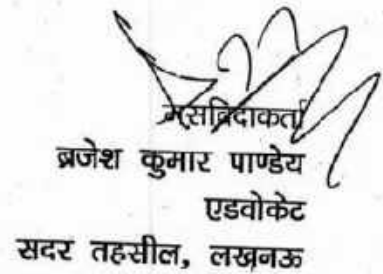 मसविदाकर्ता
ब्रजेश कुमार पाण्डेय
एडवोकेट
सदर तहसील, लखनऊ